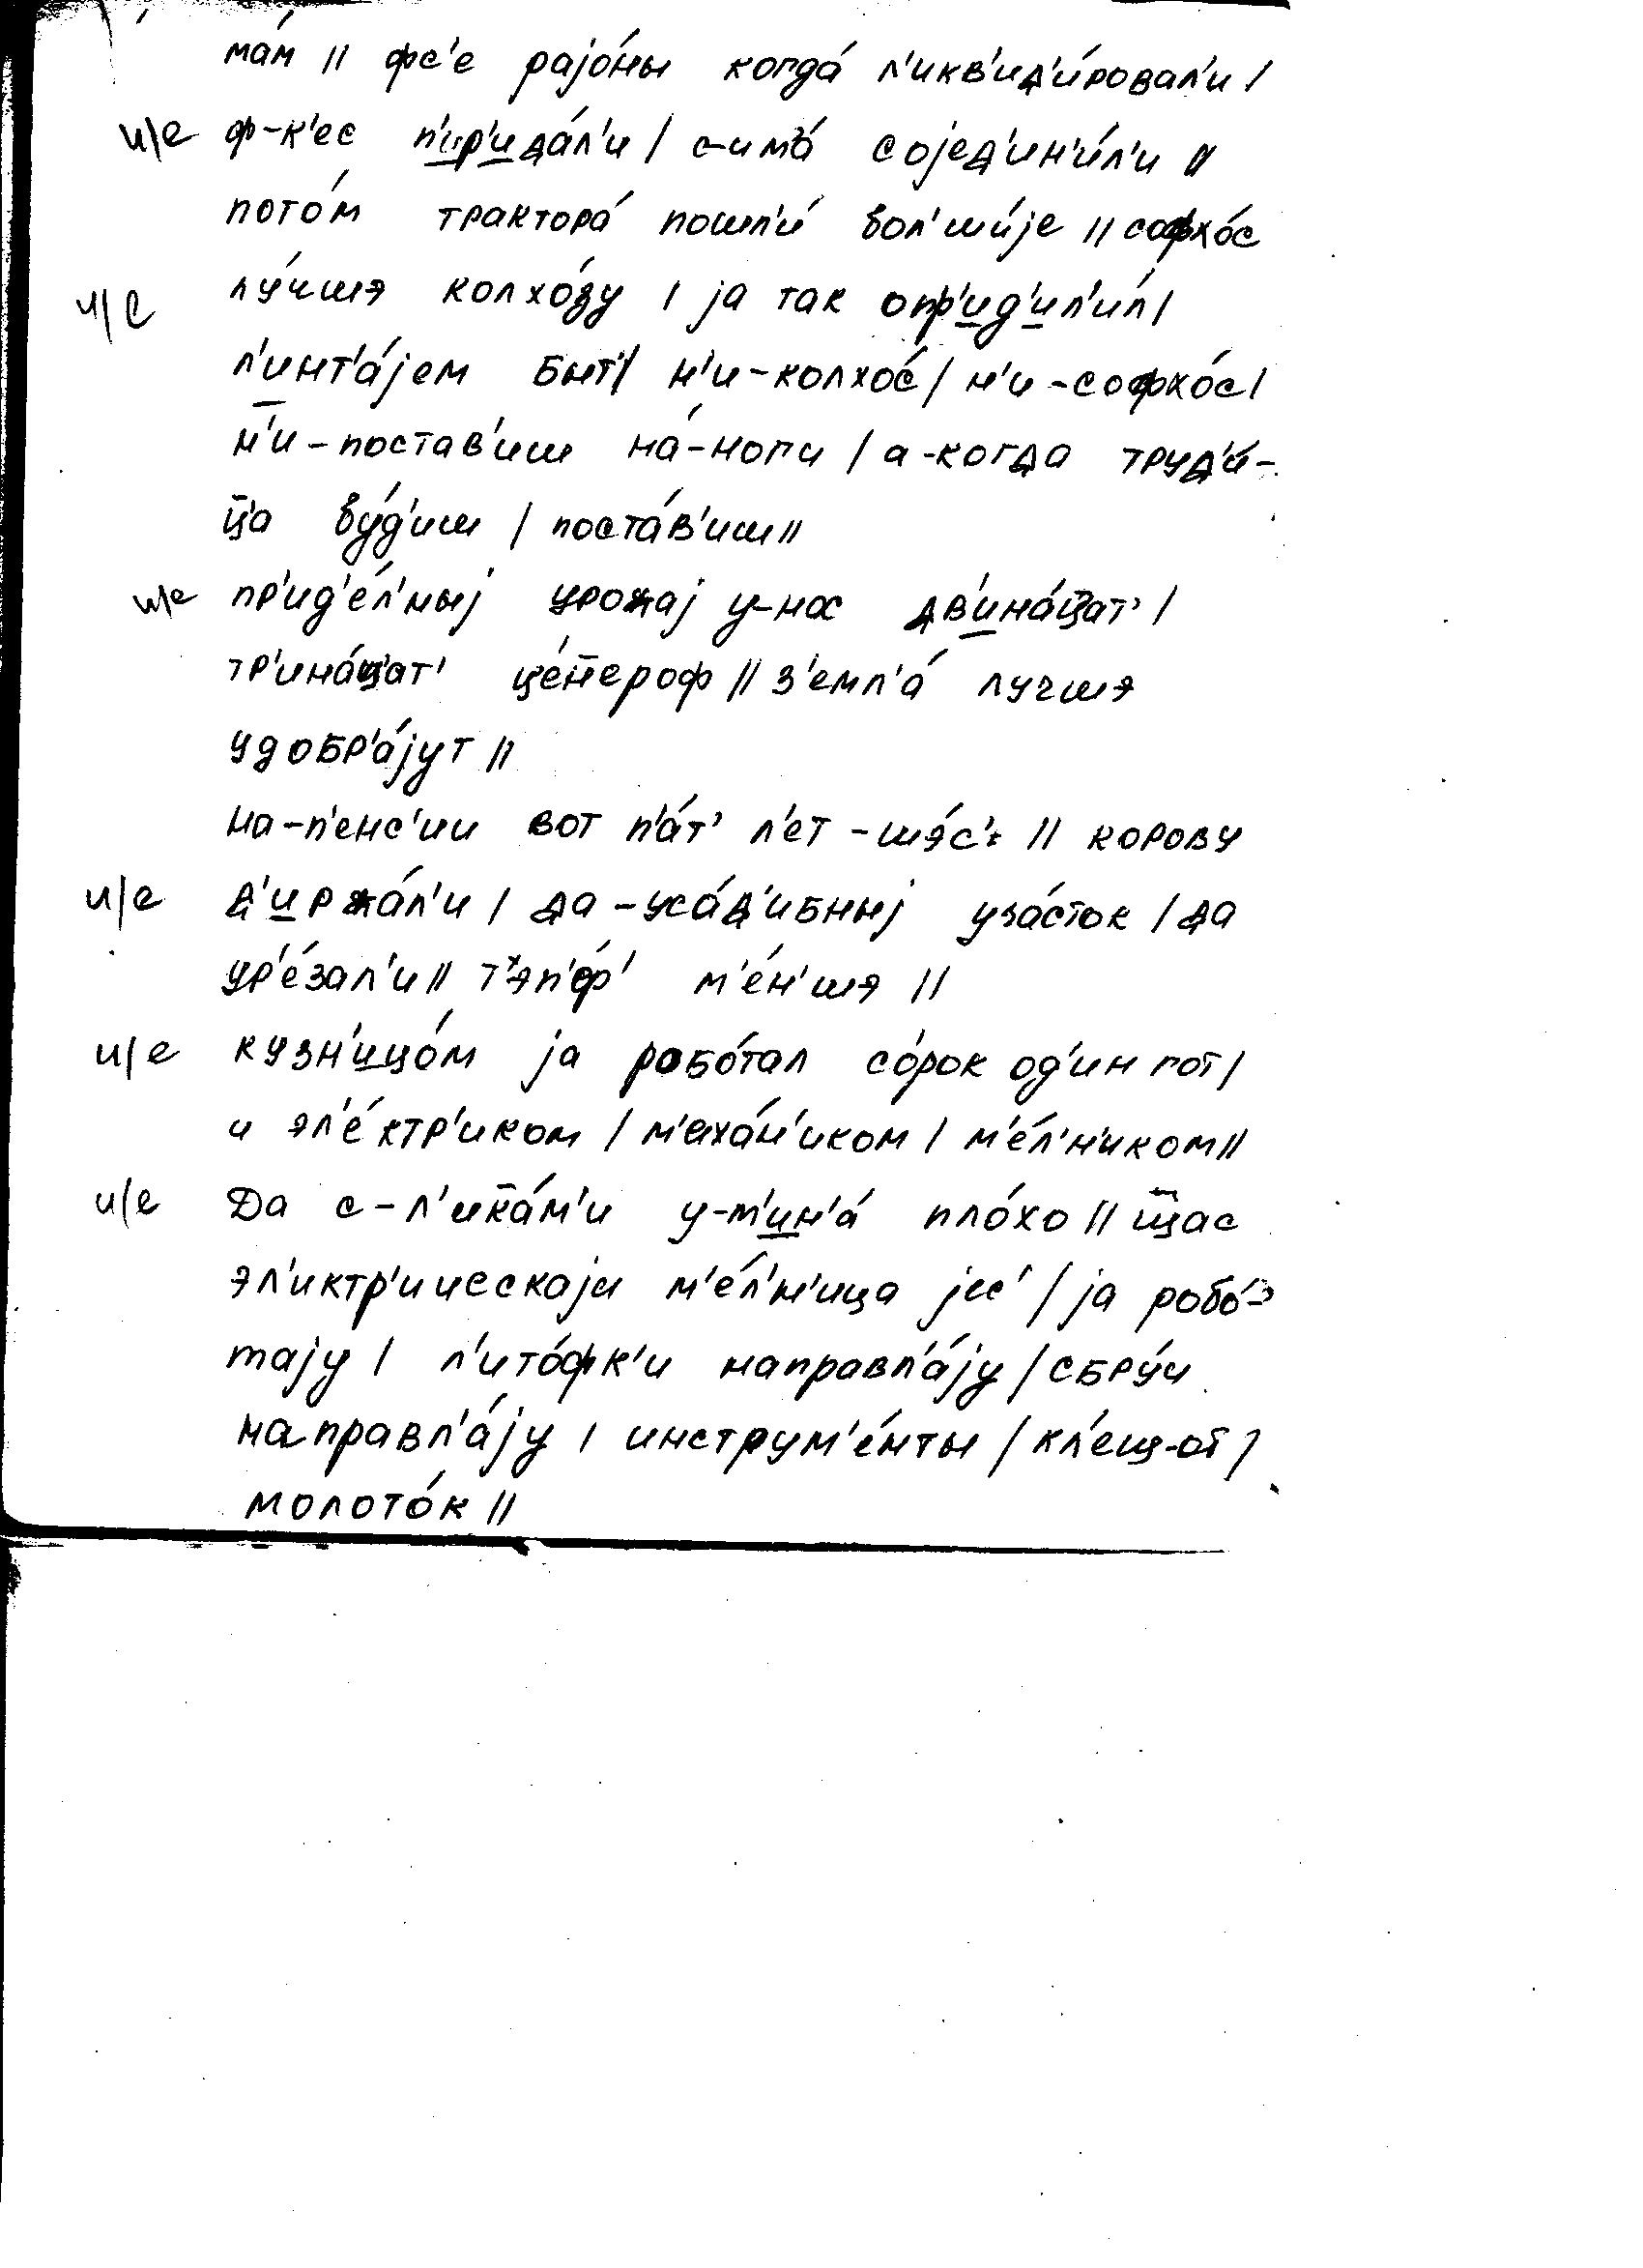 ма́м // фс'е раjо́ны когда́ л'икв'ид'и́ровал'и /
и/е ф-к'ес п'ир'ида́л'и / с-има́ соjед'ин'и́л'и //
пото́м трактора́ пошл'и́ бол'ши́jе // софхо́с
и/е лу́чшэ колхо́зу / jа так опр'ид'ил'и́л /
л'инт'а́jем быт' / н'и-колхо́с / н'и-софхо́с /
н'и-постав'иш на́-ноги / а-когда труд'и́-
ц̄а бу́д'иш / поста́в'иш //
и/е пр'ид'е́л'ныj урожаj у-нас дв'ина́ц̄ат' /
тр'ина́ц̄ат' це́нтероф // з'емл'а́ лучшэ
удобр'а́jут //
на-п'енс'ии вот п'а́т' л'ет-шэ́с' // корову
и/е д'иржа́л'и / да-уса́д'ибныj уча́сток / да
ур'е́зал'и // т'эп'е́р' м'е́н'шэ //
и/е кузн'ицо́м jа робо́тал со́рок од'ин гот /
и эл'е́ктр'иком / м'еха́н'иком / м'е́л'н'иком //
и/е Да с-л'ика́м'и у-м'ин'а́ пло́хо // щ̄ас
эл'иктр'ическаjа м'е́л'н'ица jес' / jа робо́-
таjу / л'ито́фк'и направл'а́jу / сбру́и
направл'а́jу / инструм'е́нты / кл'ещ-от /
молото́к //